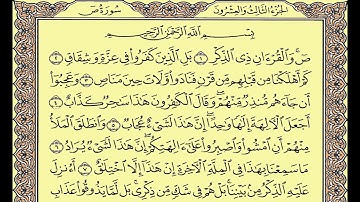 الجزء الثالث والعشرون سورة ص
بِسْمِ اللَّهِ الرَّحْمَٰنِ الرَّحِيمِ
صٓ وَالْقُرْءَانِ ذِي الذِّكْرِ ١ بَلِ الَّذِينَ كَفَرُوا فِي عِزَّةٍ وَشِقَاقٍ ٢
كَمْ أَهْلَكْنَا مِن قَبْلِهِم مِّن قَرْنٍ فَنَادَوا وَّلَاتَ حِينَ مَنَاصٍ ٣ وَعَجِبُوا
أَن جَاءَهُم مُّنذِرٌ مِّنْهُمْ وَقَالَ الْكَٰفِرُونَ هَٰذَا سَٰحِرٌ كَذَّابٌ ٤
أَجَعَلَ الْءَالِهَةَ إِلَٰهًا وَٰحِدًا إِنَّ هَٰذَا لَشَيْءٌ عُجَابٌ ٥ وَانطَلَقَ الْمَلَأُ
مِنْهُمْ أَنِ امْشُوا وَاصْبِرُوا عَلَىٰ ءَالِهَتِكُمْ إِنَّ هَٰذَا لَشَيْءٌ يُرَادُ ٦
مَا سَمِعْنَا بِهَٰذَا فِي الْمِلَّةِ الْءَاخِرَةِ إِنْ هَٰذَا إِلَّا اخْتِلَٰقٌ ٧ أَءُنزِلَ
عَلَيْهِ الذِّكْرُ مِن بَيْنِنَا بَلْ هُمْ فِي شَكٍّ مِّن ذِكْرِي بَل لَّمَّا يَذُوقُوا عَذَابِ